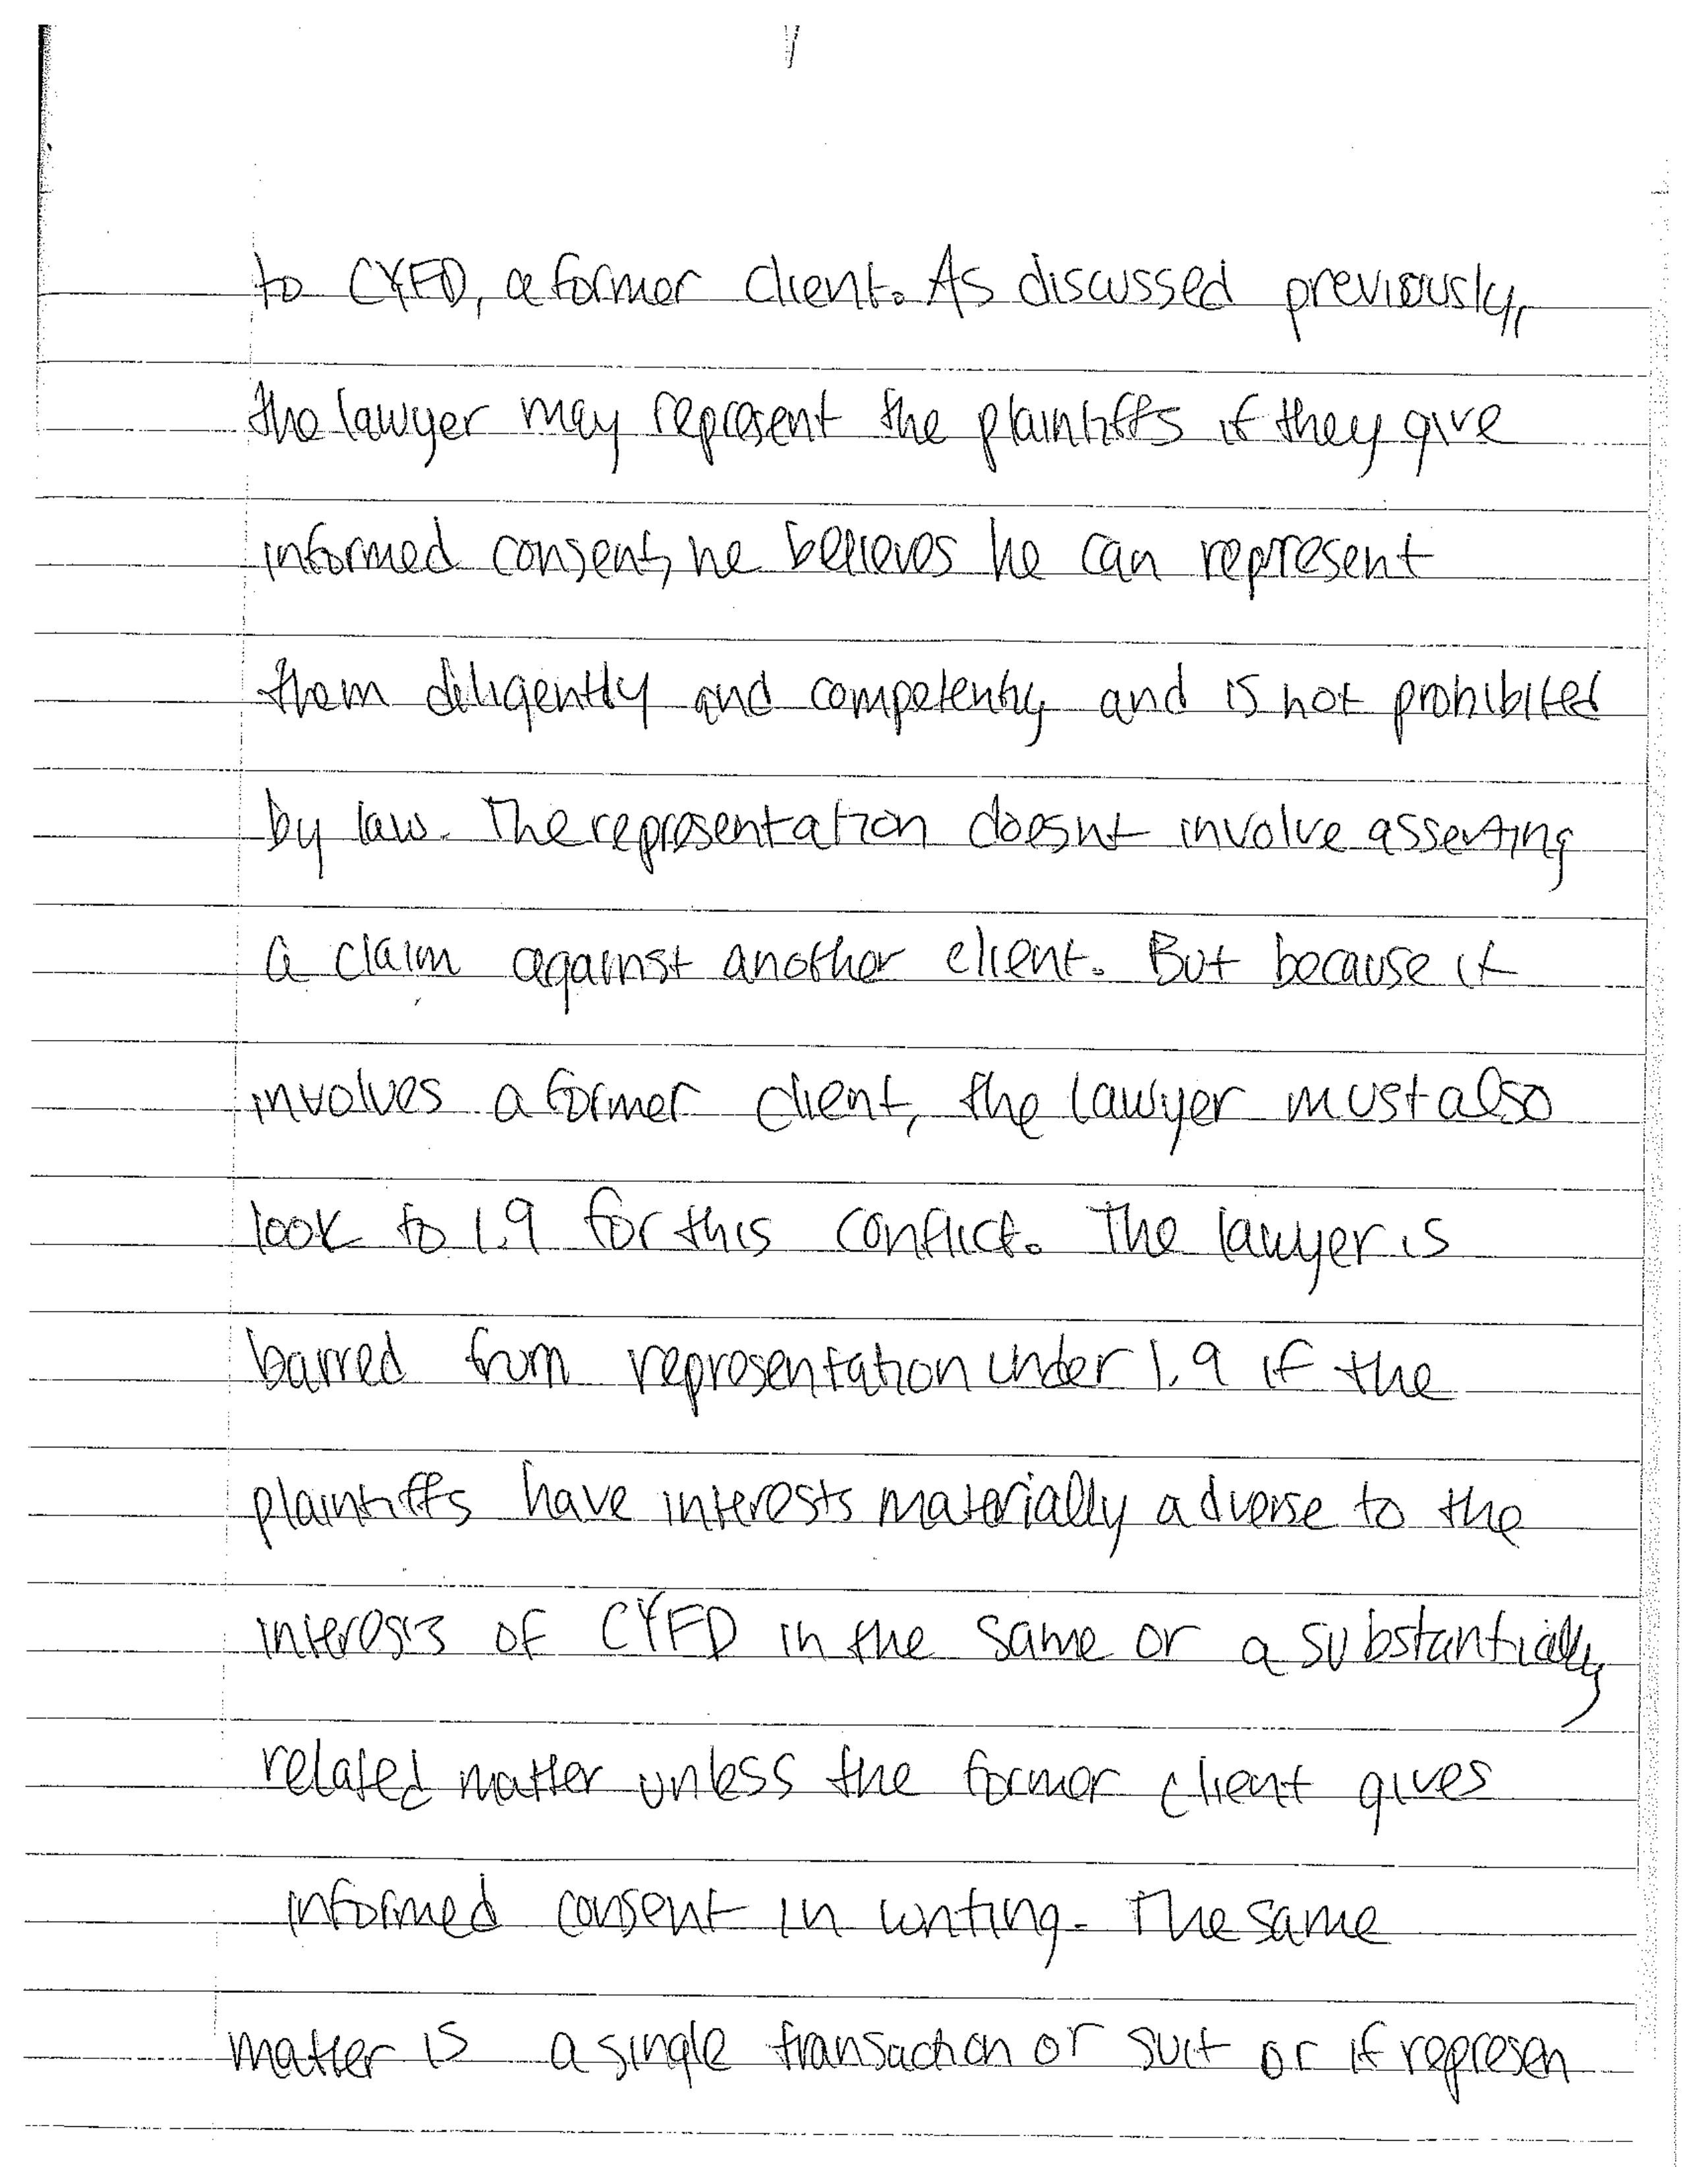 to CYFD, a former client. As discussed previously,
the lawyer may represent the plaintiffs if they give
informed consent, he believes he can represent
them diligently and competently and is not prohibited
by law. The representation doesnt involve asserting
a claim against another client. But because it
involves a former client, the lawyer must also
look to 1.9 for this conflict. The lawyer is
barred from representation under 1.9 if the
plaintiffs have interests materially adverse to the
interests of CYFD in the same or a substantially
related matter unless the former client gives
informed consent in writing. The same
matter is a single transaction or suit or if represen